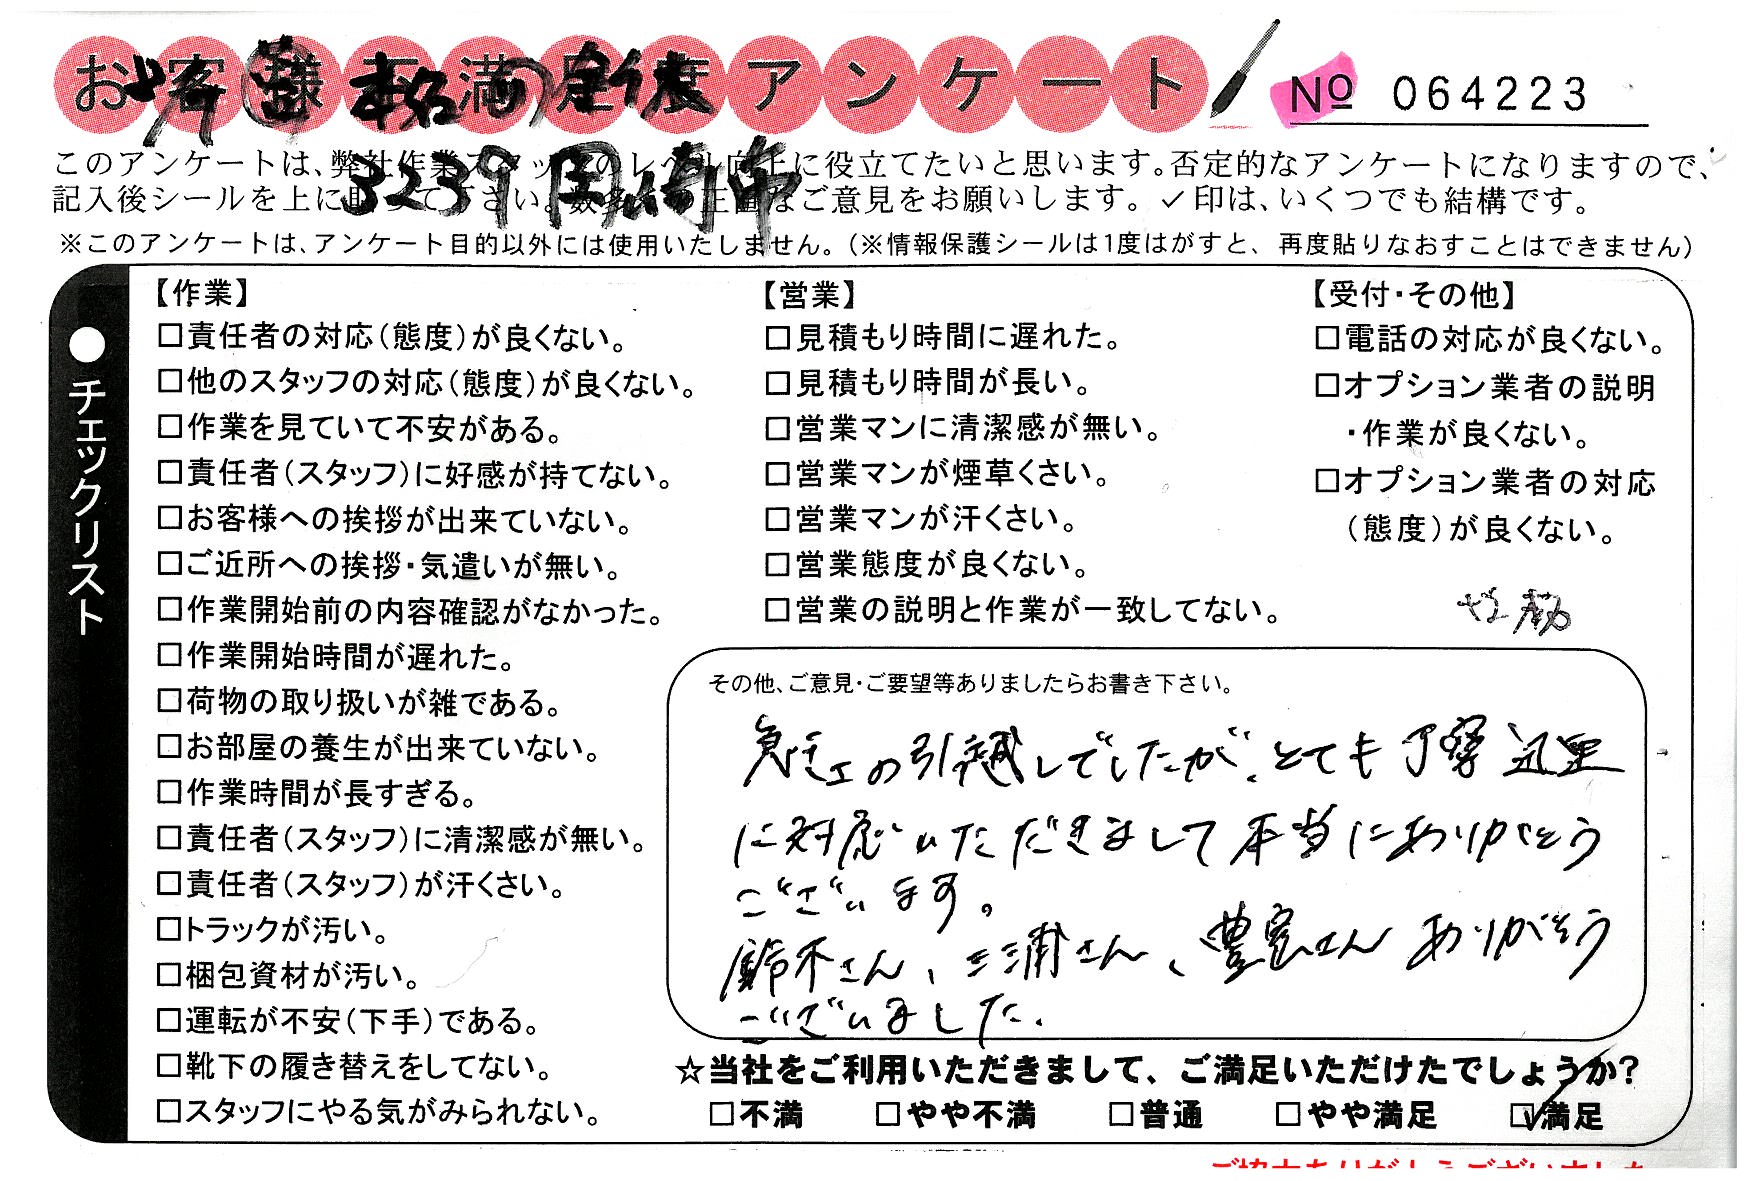 お客様不満足度アンケート
№ 064223
このアンケートは、弊社作業スタッフのレベル向上に役立てたいと思います。否定的なアンケートになりますので、
記入後シールを上に貼って下さい。数多くの正直なご意見をお願いします。✓印は、いくつでも結構です。
3239 岡崎市
※このアンケートは、アンケート目的以外には使用いたしません。(※情報保護シールは1度はがすと、再度貼りなおすことはできません)
●チェックリスト
【作業】
□責任者の対応(態度)が良くない。
□他のスタッフの対応(態度)が良くない。
□作業を見ていて不安がある。
□責任者(スタッフ)に好感が持てない。
□お客様への挨拶が出来ていない。
□ご近所への挨拶・気遣いが無い。
□作業開始前の内容確認がなかった。
□作業開始時間が遅れた。
□荷物の取り扱いが雑である。
□お部屋の養生が出来ていない。
□作業時間が長すぎる。
□責任者(スタッフ)に清潔感が無い。
□責任者(スタッフ)が汗くさい。
□トラックが汚い。
□梱包資材が汚い。
□運転が不安(下手)である。
□靴下の履き替えをしてない。
□スタッフにやる気がみられない。
【営業】
□見積もり時間に遅れた。
□見積もり時間が長い。
□営業マンに清潔感が無い。
□営業マンが煙草くさい。
□営業マンが汗くさい。
□営業態度が良くない。
□営業の説明と作業が一致してない。
【受付・その他】
□電話の対応が良くない。
□オプション業者の説明
・作業が良くない。
□オプション業者の対応
(態度)が良くない。
その他、ご意見・ご要望等ありましたらお書き下さい。
の引越しでしたが、とても丁寧 迅速
に対応いただきまして本当にありがとう
ございます。
鈴木さん、三浦さん、豊家さん ありがとう
ございました.
☆当社をご利用いただきまして、ご満足いただけたでしょうか?
□不満 □やや不満 □普通 □やや満足 ☑満足
ご協力ありがとうございました